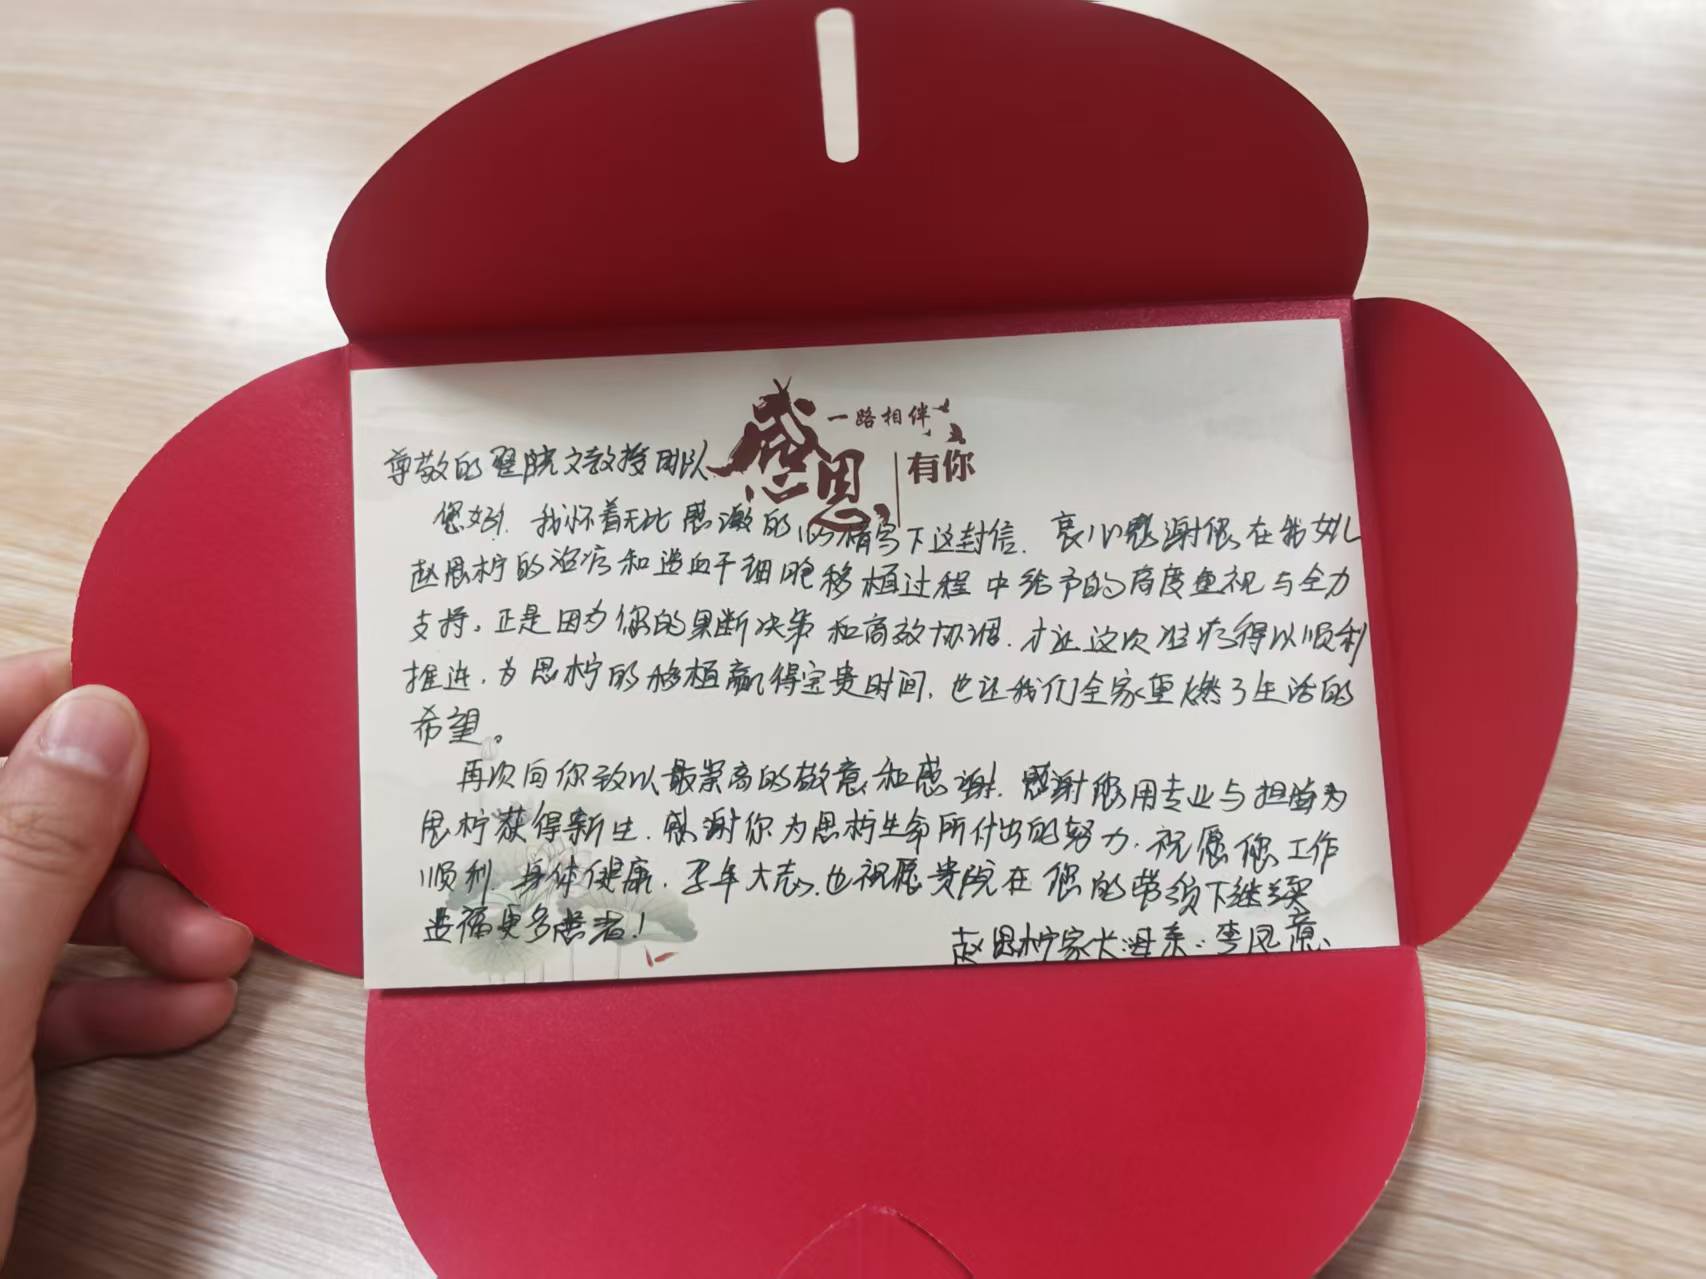 感恩
一路相伴
有你
尊敬的翟院文教授团队
您好!我怀着无比感激的心情写下这封信.衷心感谢您在我女儿
赵思柠的治疗和造血干细胞移植过程中给予的高度重视与全力
支持。正是因为你的果断决策和高效协调.才让这次治疗得以顺利
推进.为思柠的移植赢得宝贵时间.也让我们全家重燃了生活的
希望。
再次向你致以最崇高的敬意和感谢!感谢您用专业与担当为
思柠获得新生.感谢你为思柠生命所付出的努力.祝愿您工作
顺利 身体健康.大志.也祝愿贵院在您的带领下继续
造福更多患者!
赵思柠家长:母亲:李凤